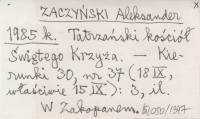 ZACZYŃSKI Aleksander
1985 k. Tatrzański kościół
Świętego Krzyża. — Kie-
runki 30, nr 37 (18 IX,
właściwie 15 IX): 3, il.
W Zakopanem.